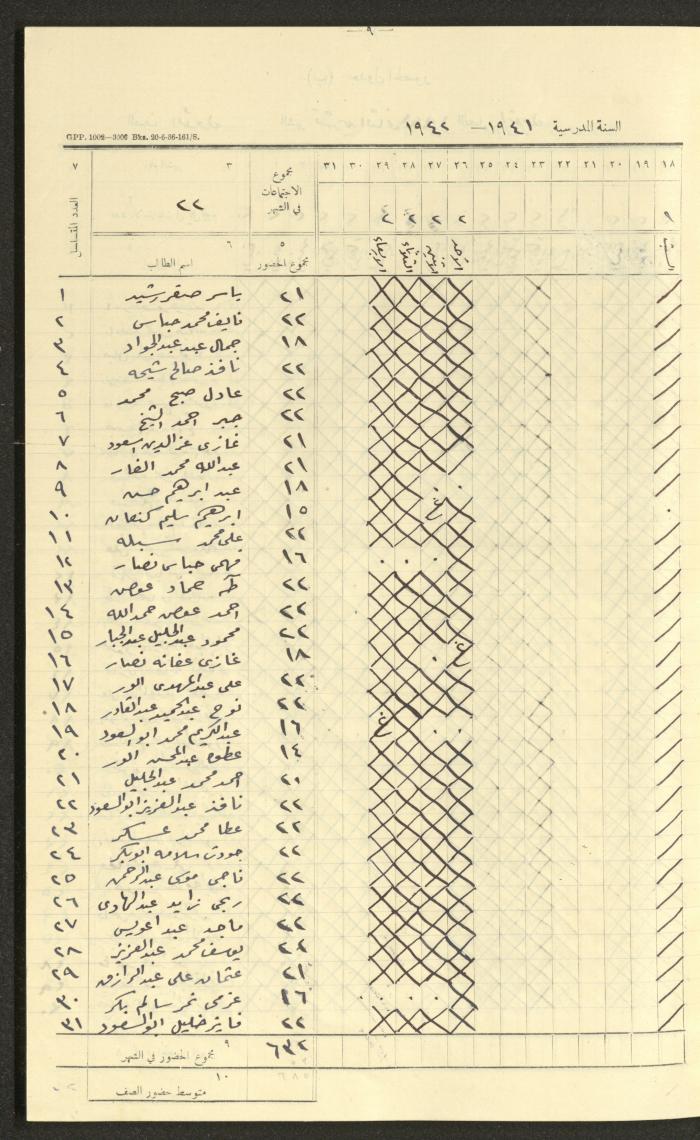 — ٩ —
السنة المدرسية ١٩٤١ – ١٩٤٢
GPP. 1002—3000 Bks. 20-6-36-161/S.
١٨ ١٩ ٢٠ ٢١ ٢٢ ٢٣ ٢٤ ٢٥ ٢٦ ٢٧ ٢٨ ٢٩ ٣٠ ٣١ مجموع الاجتماعات في الشهر ٣ ٧
٢ ٢ ٢ ٢ ٢٢ العدد المتسلسل
السبت الاحد الاثنين الثلاثاء الاربعاء ٥ مجموع الحضور ٦ اسم الطالب
٢١ ياسر صقر رشيد ١
٢٢ نايف محمد عباس ٢
١٨ جمال عبد عبد الجواد ٣
٢٢ نافذ صالح شيحه ٤
٢٢ عادل صبح محمد ٥
٢٢ جبر احمد الشيخ ٦
٢١ غازي عز الدين اسعود ٧
٢١ عبدالله محمد الفار ٨
١٨ عبد ابرهيم حسن ٩
غ ١٥ ابرهيم سليم كنعان ١٠
٢٢ علي محمد ١١
١٦ فهمي عباس نصار ١٢
٢٢ طه حماد عوض ١٣
٢٢ احمد عوض حمدالله ١٤
٢٢ محمود عبد الجليل عبد الجبار ١٥
غ ١٨ غازي عفانه نصار ١٦
٢٢ علي عبد المهدي الور ١٧
٢٢ نوح عبد الحميد عبد القادر ١٨
غ ١٦ عبد الكريم محمد ابو السعود ١٩
١٤ عطوه عبد المحسن الور ٢٠
٢٠ احمد محمد عبد الجليل ٢١
٢٢ نافذ عبد العزيز ابو السعود ٢٢
٢٢ عطا محمد عساكر ٢٣
٢٢ جودت سلامه ابو بكر ٢٤
٢٢ ناجي موسى عبد الرحمن ٢٥
٢٢ ربحي زايد عبد الهادي ٢٦
٢٢ ماجد عبد اعويس ٢٧
٢٢ يوسف محمد عبد العزيز ٢٨
٢١ عثمان علي عبد الرازق ٢٩
١٦ عزمي نمر سالم بكر ٣٠
٢٢ فايز خليل ابو السعود ٣١
٦٣٢ ٩ مجموع الحضور في الشهر
١٠ متوسط حضور الصف